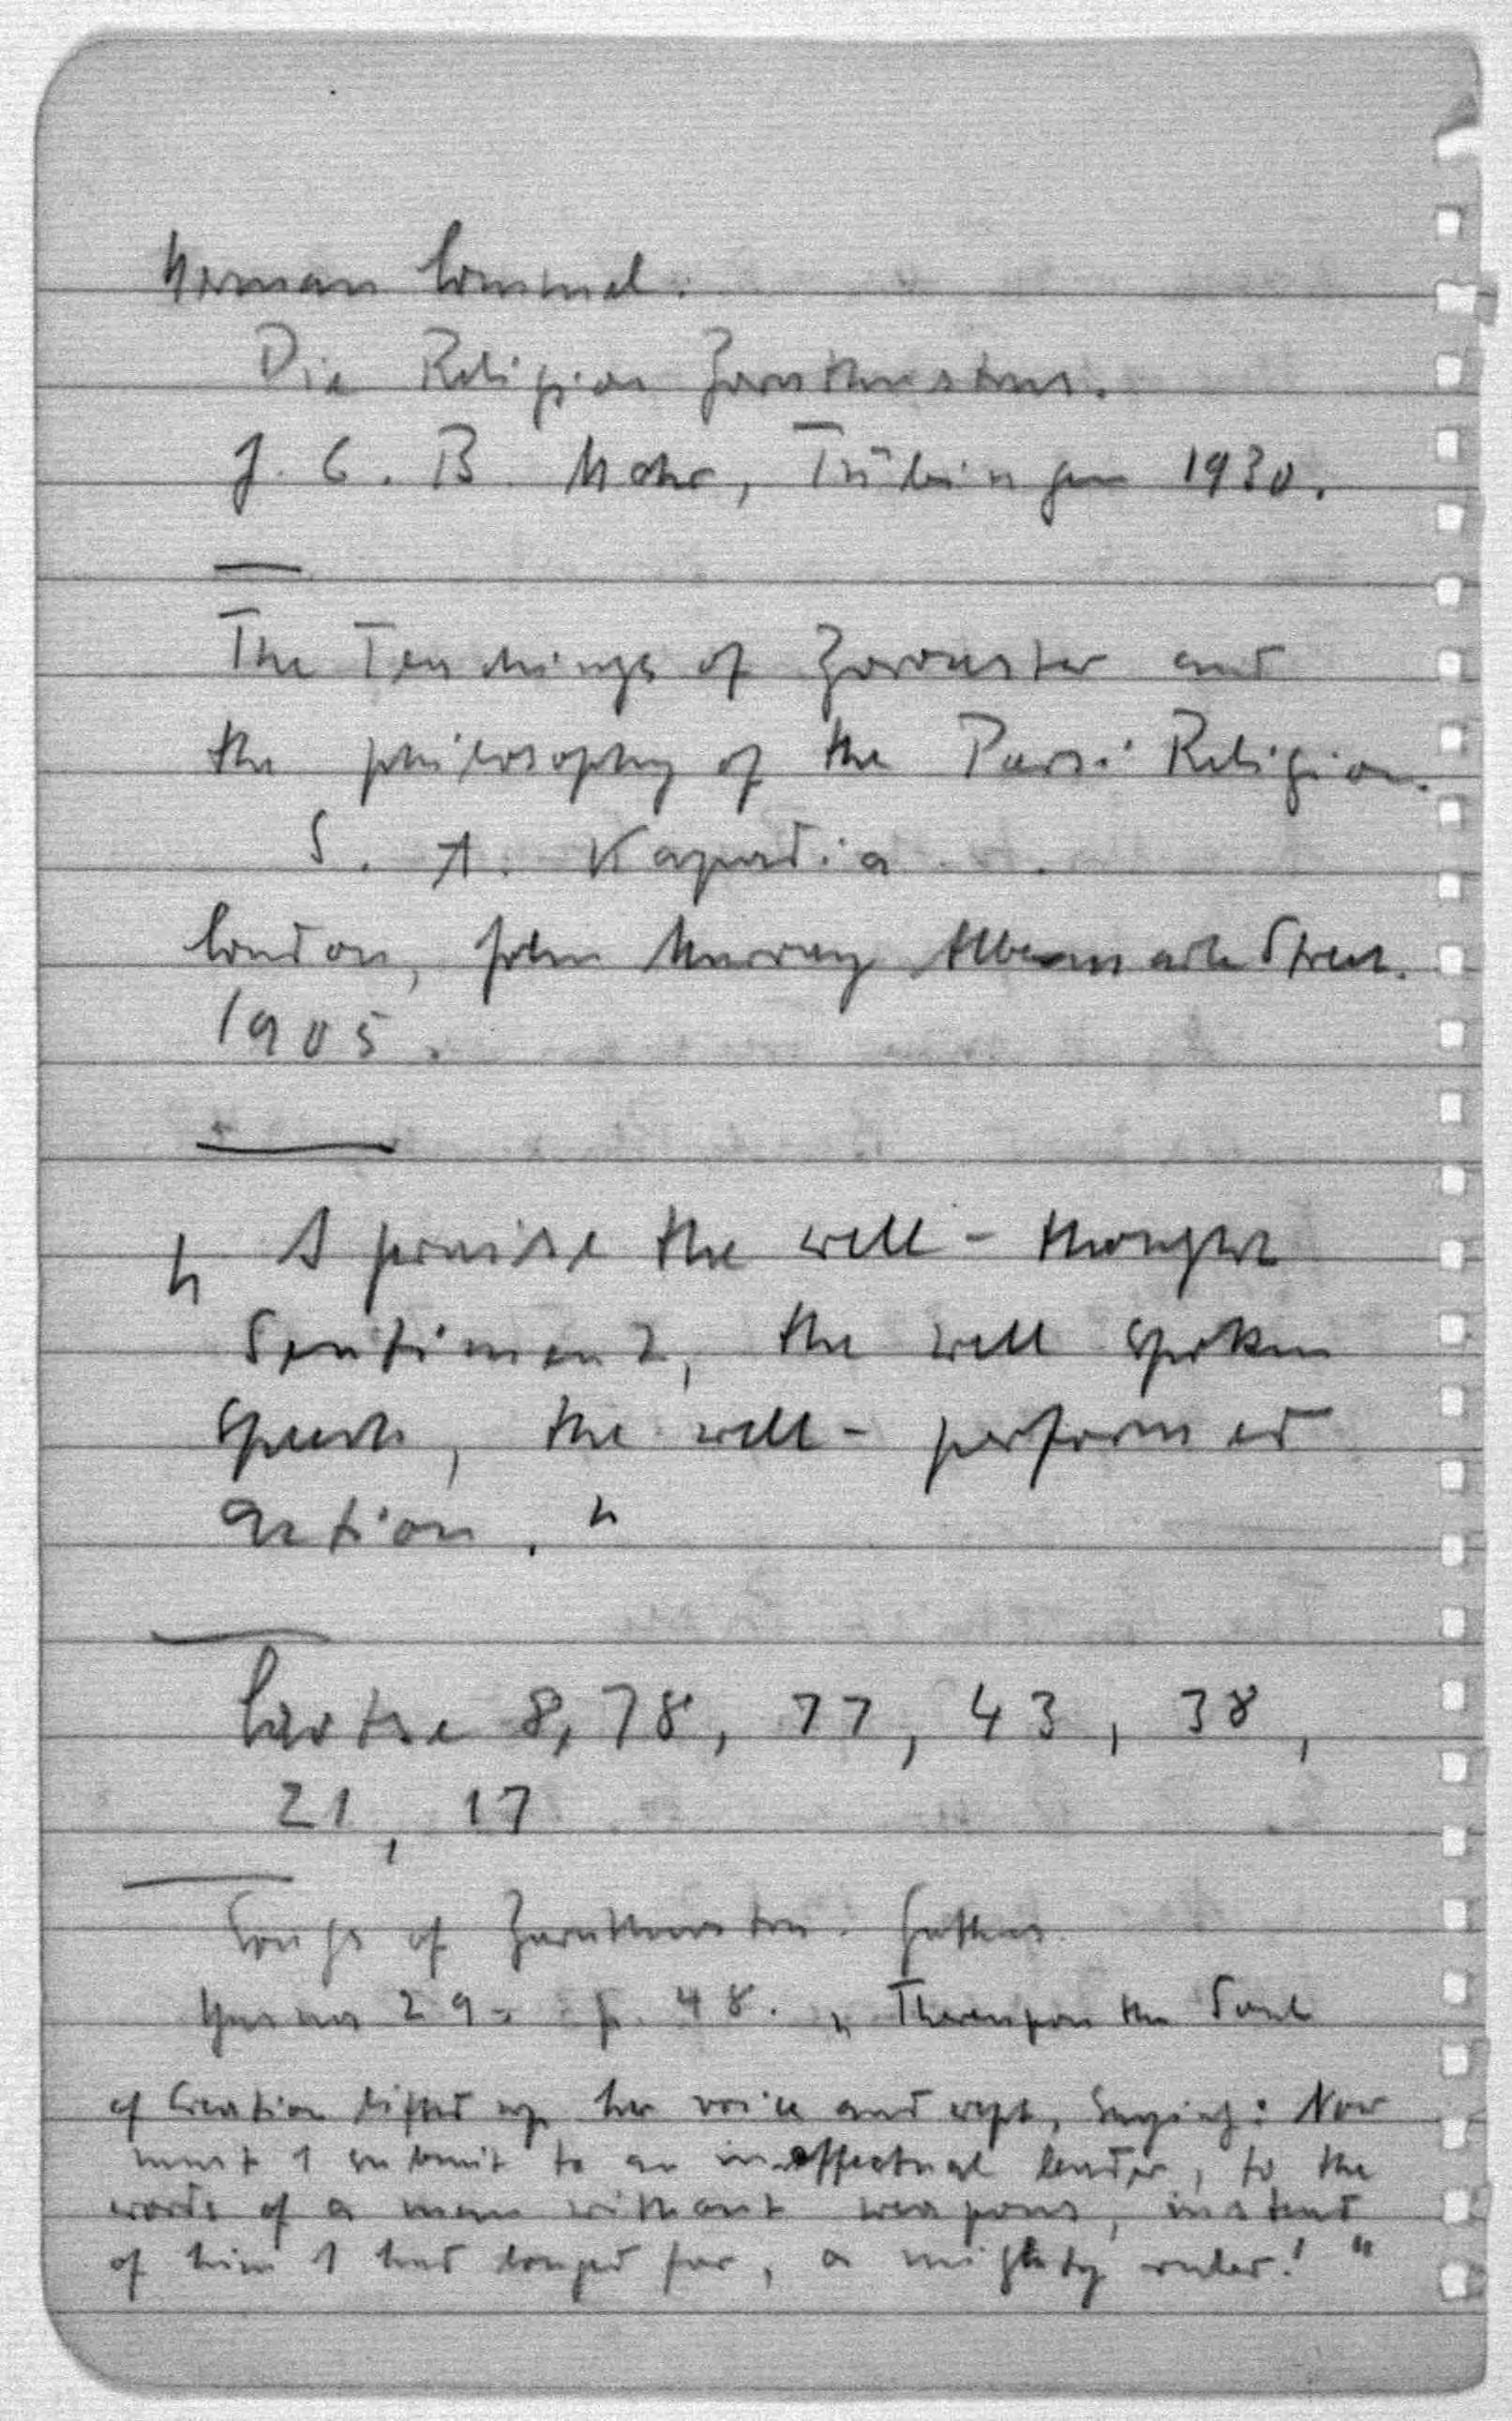 Herman Lommel.
Die Religion Zarathustras.
J. C. B Mohr, Tübingen 1930.
The Teachings of Zoroaster and
the philosophy of the Parsi Religion.
S. A. Kapadia
London, John Murray Albemarle Street.
1905.
„ I praise the well - thought
Sentiment, the well spoken
speech, the well - performed
action. "
Laotse 8, 78, 77, 43, 38,
21, 17
Songs of Zarathustra. Gathas.
Yasna 29. p. 48. „ Thereupon the Soul
of Creation lifted up her voice and wept, saying: Now
must I submit to an ineffectual leader, to the
words of a man without weapons, instead
of him I had longed for, a mighty ruler! "